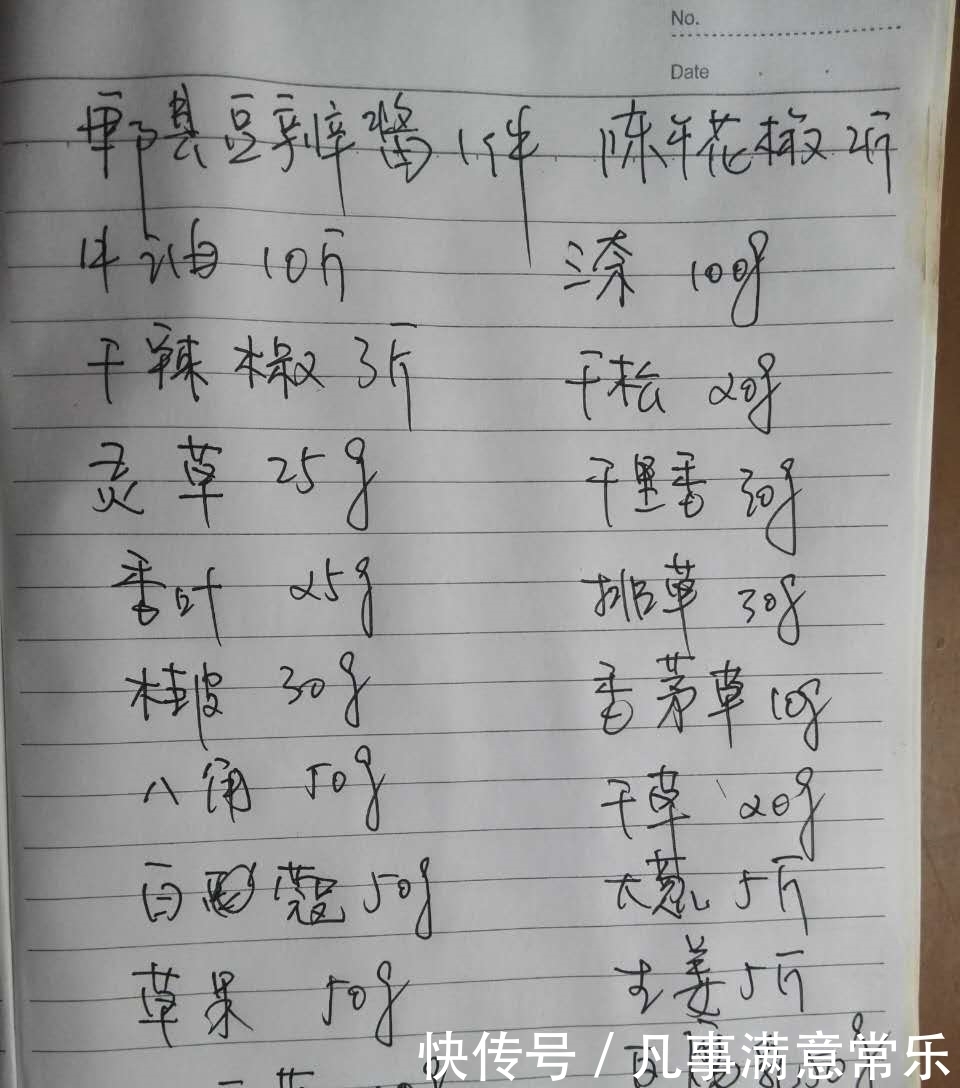 No.
Date
郫县豆瓣酱1件 陈年花椒2斤
牛油 10斤 三奈 100g
干辣椒 3斤 干松 20g
灵草 25g 千里香 30g
香叶 25g 排草 30g
桂皮 30g 香茅草 10g
八角 50g 干草 20g
白蔻 50g 大葱 5斤
草果 50g 生姜 5斤
快传号 / 凡事满意常乐